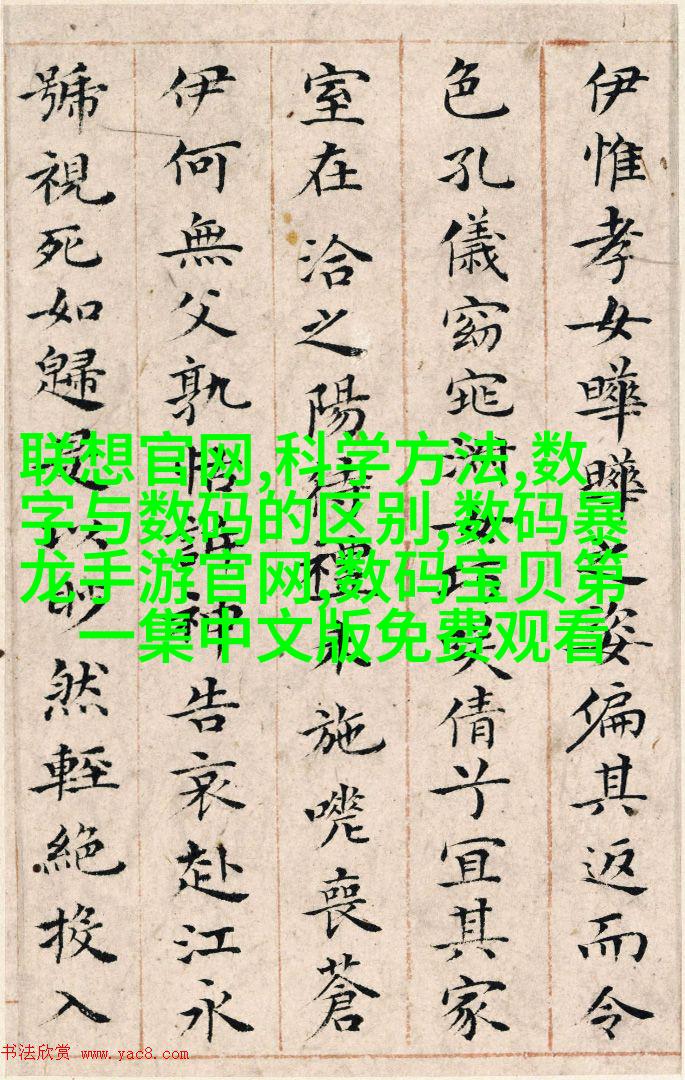 伊惟孝女曄曄之姿偏其返而令
色孔儀窈窕淑女巧笑倩兮宜其家
室在洽之陽待禮未施嗟喪蒼
伊何無父孰怙訴神告哀赴江永
號視死如歸是以眇然輕絕投入
联想官网,科学方法,数
字与数码的区别,数码暴
龙手游官网,数码宝贝第
一集中文版免费观看
书法欣赏 www.yac8.com